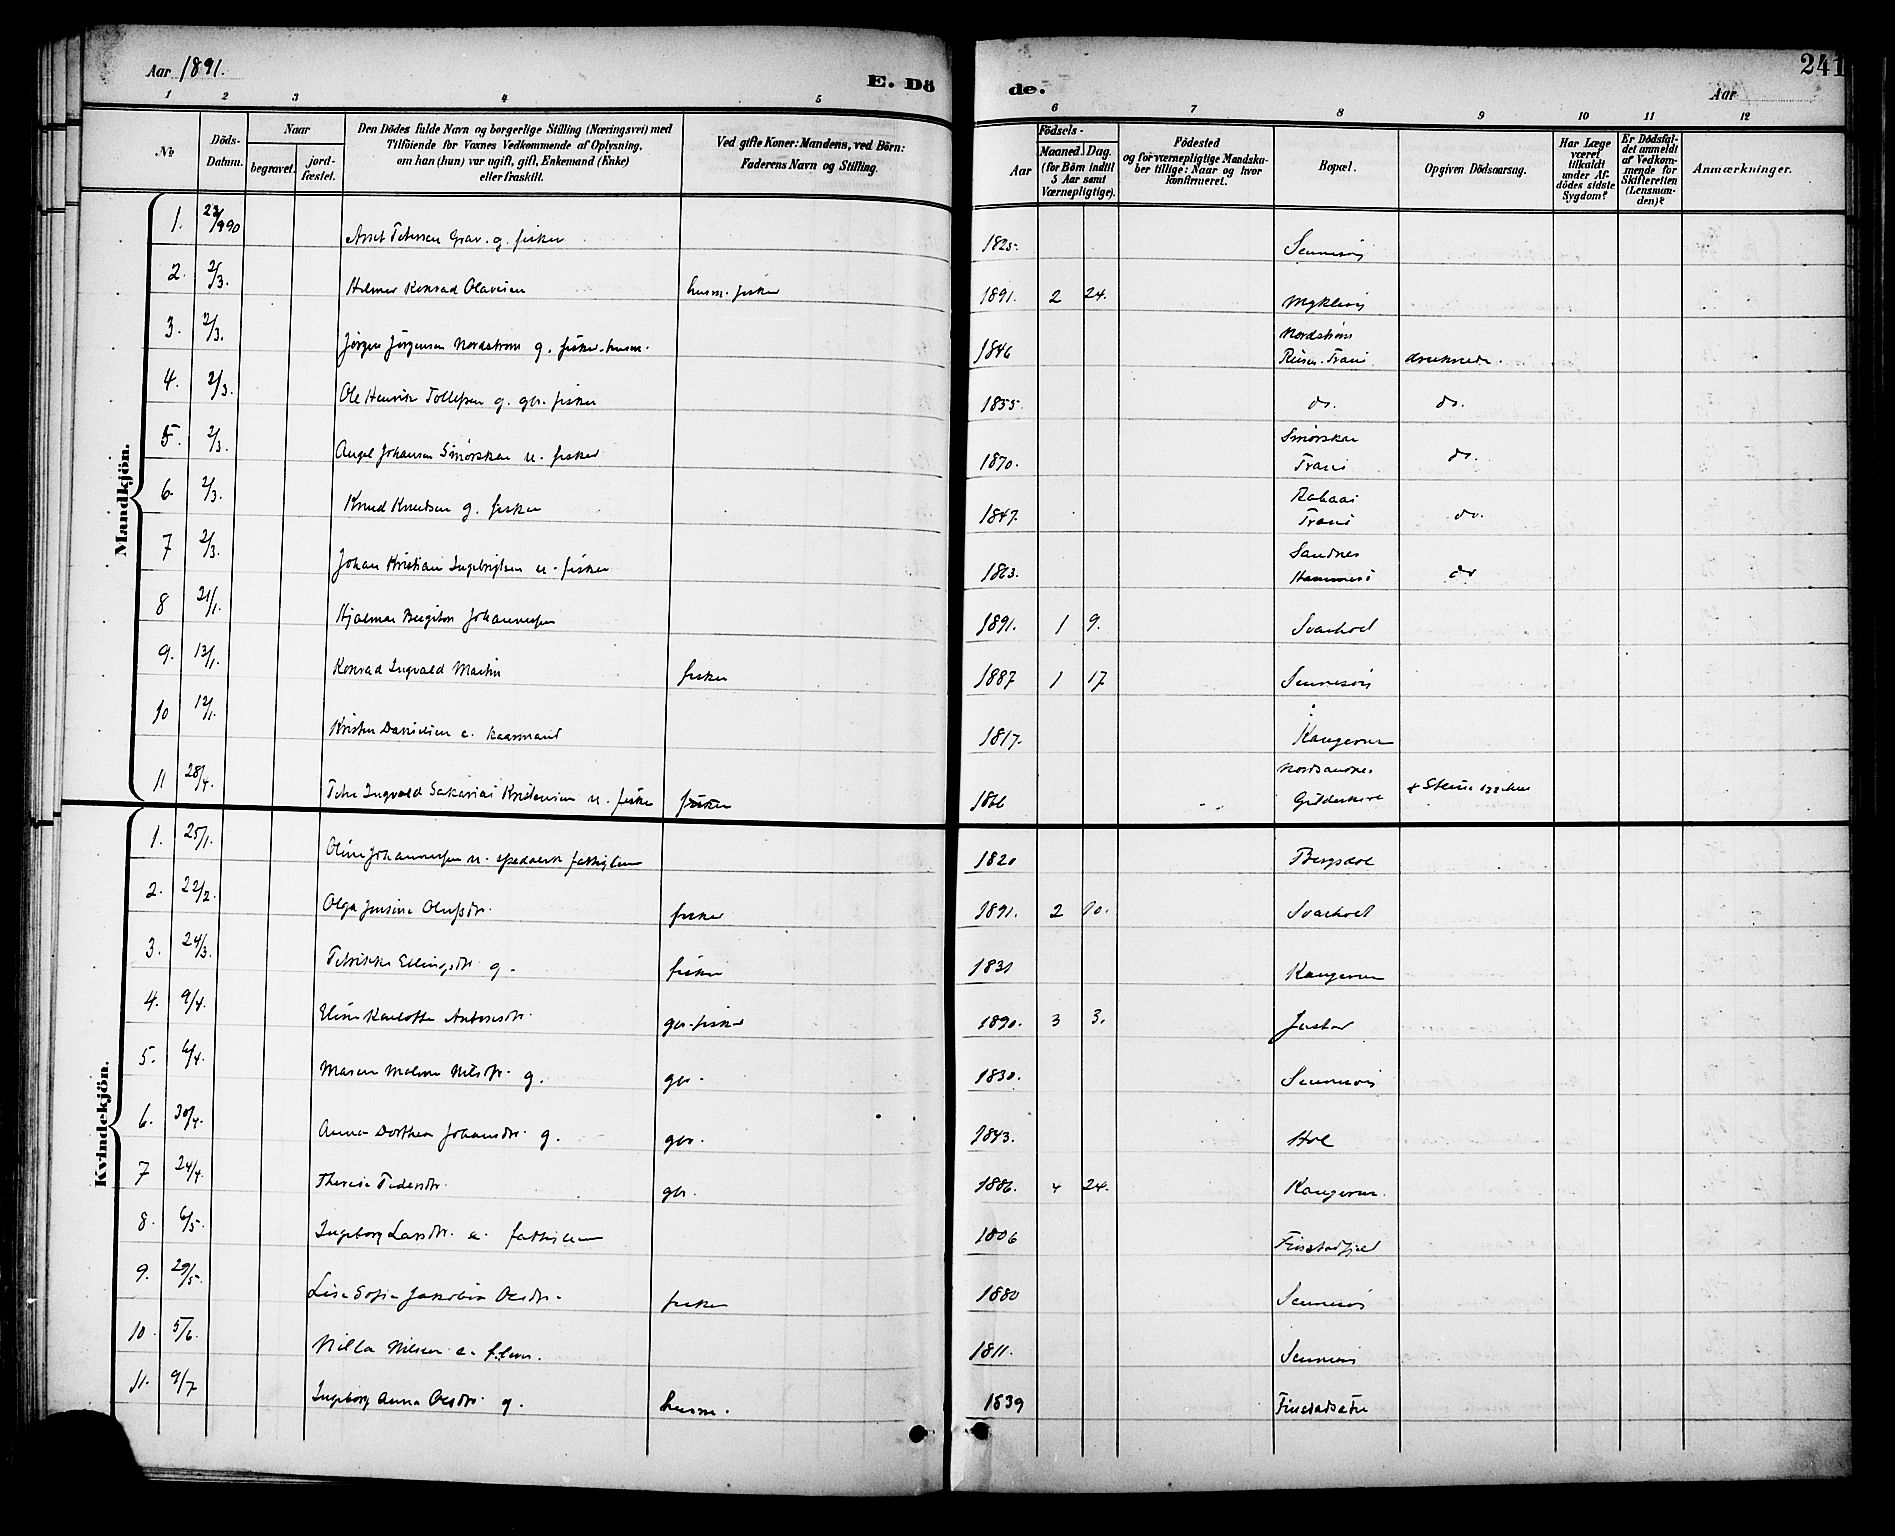 Aar 1891.
E. Dö
de.
Aar
241
1 2 3 4 5 6 7 8 9 10 11 12
No
Döds-Datum.
Naar
begravet.
jord-fæstet.
Den Dödes fulde Navn og borgerlige Stilling (Næringsvei) med
Tilföiende for Voxnes Vedkommende af Oplysning.
om han (hun) var ugift, gift, Enkemand (Enke)
eller fraskilt.
Ved gifte Koner: Mandens, ved Börn:
Faderens Navn og Stilling.
Aar
Födsels-
Maaned. Dag.
(for Börn indtil
5 Aar samt
Værnepligtige).
Födested
og for værnepligtige Mandska-
ber tillige: Naar og hvor
konfirmeret.
Bopæl.
Opgiven Dödsaarsag.
Har Læge
været
tilkaldt
under Af-
dödes sidste
Sygdom?
Er Dödsfal-
det anmeldt
af Vedkom-
mende for
Skifteretten
(Lensman-
den)?
Anmærkninger.
Mandkjön.
1. Petersen g. fisker 1825. Sennesvi
2. 2/3. Helmer Konrad Olavsen husm. fisker 1891. 2 24. Myklevi
3. 2/3. Jørgen Jørgensen Nordstrøm g. fisker husm. 1846 Nordstrøm druknede.
4. 2/3. Ole Henrik Tollefsen g. gbr. fisker 1855 do. do.
5. 2/3. Angel Johansen Smørskar u. fisker 1870. Smørskar do.
6. 2/3. Knud Knudsen g. fisker 1847. do.
7 2/3. Johan Kristian Ingebrigtsen u. fisker 1863. Sandnes do
8 21/1. Hjalmar Johannessen 1891. 1 9. Svarholt
9. 13/1. Konrad Ingvald Martin fisker 1887 1 17 Sennesvi
10 12/1. Kristen Danielsen e. kaarmand 1817. Kangerur
11 28/4. Peter Ingvald Sakarias Kristensen u. fisker fisker 1866 Nordsandnes Gildeskaal
Kvindekjön.
1. 25/1. Oline Johannessen u. fattiglem 1820 Bergsdal
2. 22/2. Olga Jensine Olufsdtr. fisker 1891. 2 10. Svarholt
3. 24/3. Petrikke Ellingsdtr g. fisker 1831 Kangerur
4. 9/4. Eline Karlotte Antonsdtr. gbr. fisker 1890. 3 3. Justad
5. 6/4. Maren Malene Nilsdtr. g. gbr. 1830. Sennesvi
6. 30/4. Anna Dorthea Johansdtr. g. gbr. 1843. Hol
7 24/4. Therese Pedersdtr. gbr. 1886. 4 24. Kangerur.
8. 6/5. Ingeborg Larsdtr. e. fattiglem 1806
9. 29/5. Lise Sofie Jakobine Olsdtr. fisker 1880 Sennesvi
10. 5/6. Nilla Nilsen e. f.lem. 1811. Sennesvi
11. 9/7 Ingeborg Anna Olsdtr. g. husm. 1839 Finstadsæter